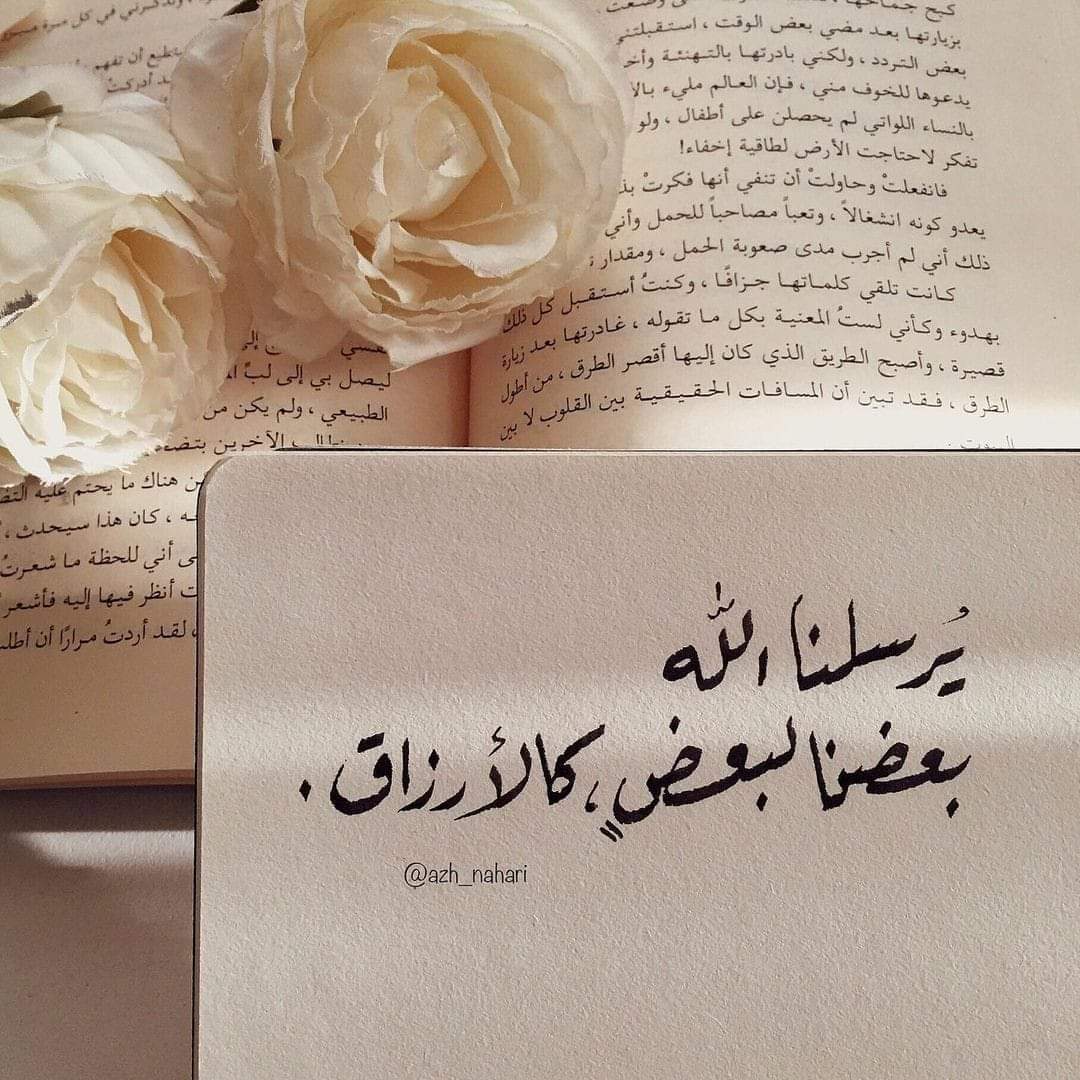 كبح جماحها
بزيارتها بعد مضي بعض الوقت ، استقبلتني
بعض التردد ، ولكني بادرتها بالتهنئة
يدعوها للخوف مني ، فإن العالم مليء
بالنساء اللواتي لم يحصلن على أطفال ، ولو
تفكر لاحتاجت الأرض لطاقية إخفاء!
فانفعلتْ وحاولتْ أن تنفي أنها فكرتْ
يعدو كونه انشغالاً ، وتعباً مصاحباً للحمل وأني
ذلك أني لم أجرب مدى صعوبة الحمل ، ومقدار
كانت تلقي كلماتها جزافًا ، وكنتُ أستقبل كل ذلك
بهدوء وكأني لستُ المعنية بكل ما تقوله ، غادرتها بعد زيارة
قصيرة ، وأصبح الطريق الذي كان إليها أقصر الطرق ، من أطول
الطرق ، فقد تبين أن المسافات الحقيقية بين القلوب لا بين
ليصل بي إلى لبّ
الطبيعي ، ولم يكن من
الآخرين
هناك ما يحتم عليه
كان هذا سيحدث ،
أني للحظة ما شعرتُ
أنظر فيها إليه فأشعر
، لقد أردتُ مرارًا أن
يُرسلنا الله
بعضنا لبعضٍ ، كالأرزاق .
@azh_nahari